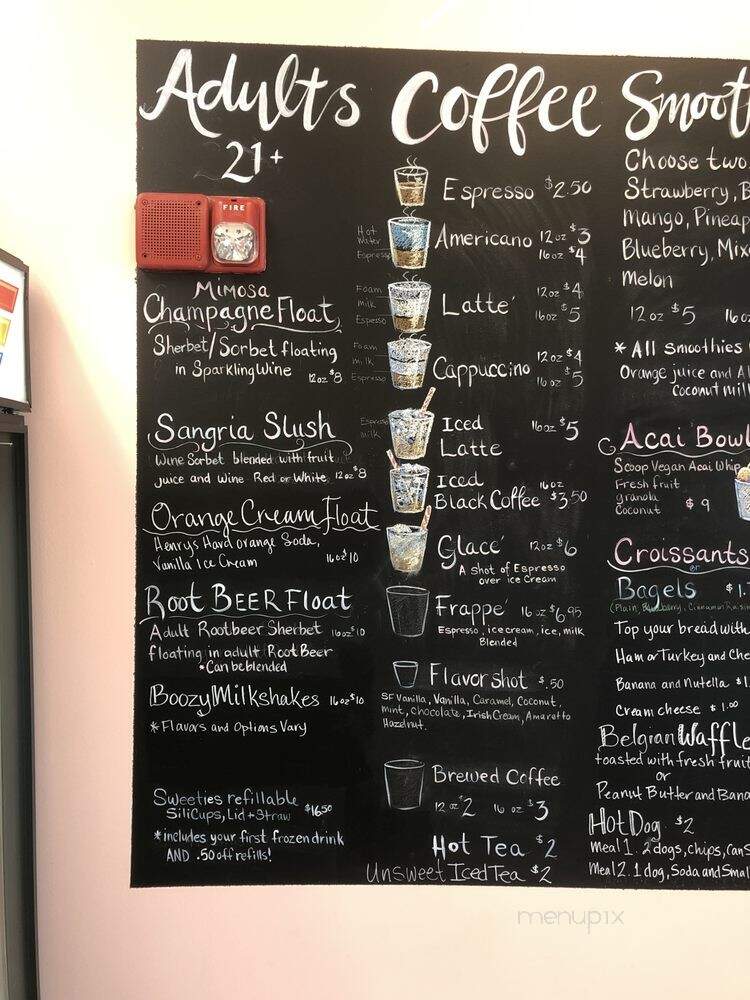 Adults
21+
FIRE
Mimosa
Champagne Float
Sherbet/Sorbet floating
in Sparkling Wine 12oz $8
Sangria Slush
Wine Sorbet blended with fruit
juice and wine Red or White 12oz $8
Orange Cream Float
Henrys Hard orange Soda,
Vanilla Ice Cream 16oz $10
Root BEER Float
Adult Rootbeer Sherbet 16oz $10
floating in adult Root Beer
*Can be blended
Boozy Milkshakes 16oz $10
*Flavors and Options Vary
Sweeties refillable
SiliCups, Lid + Straw $16.50
*includes your first frozen drink
AND .50 off refills!
Coffee
Espresso $2.50
Hot
Water
Espresso
Americano 12oz $3
16oz $4
Foam
milk
Espresso
Latte' 12oz $4
16oz $5
Foam
milk
Espresso
Cappuccino 12oz $4
16oz $5
Espresso
milk
Iced
Latte 16oz $5
Iced
Black Coffee 16oz $3.50
Glace' 12oz $6
A shot of Espresso
over ice Cream
Frappe' 16oz $6.95
Espresso, ice cream, ice, milk
Blended
Flavor shot $.50
SF Vanilla, Vanilla, Caramel, Coconut,
mint, Chocolate, Irish Cream, Amaretto
Hazelnut.
Brewed Coffee
12oz $2 16oz $3
Hot Tea $2
Unsweet Iced Tea $2
Smoot
Choose two
Strawberry, B
Mango, Pineap
Blueberry, Mixe
melon
12oz $5 16o
*All smoothies
Orange juice and Al
coconut mil
Acai Bowl
Scoop Vegan Acai Whip
Fresh fruit
granola
Coconut $9
Croissants
or
Bagels $1.
(Plain, Blueberry, Cinnamon Raisin
Top your bread with
Ham or Turkey and Che
Banana and Nutella $1.
Cream cheese $1.00
Belgian Waffle
toasted with fresh fruit
or
Peanut Butter and Bana
Hot Dog $2
Meal 1. 2 dogs, chips, can S
Meal 2. 1 dog, Soda and Smal
menupix